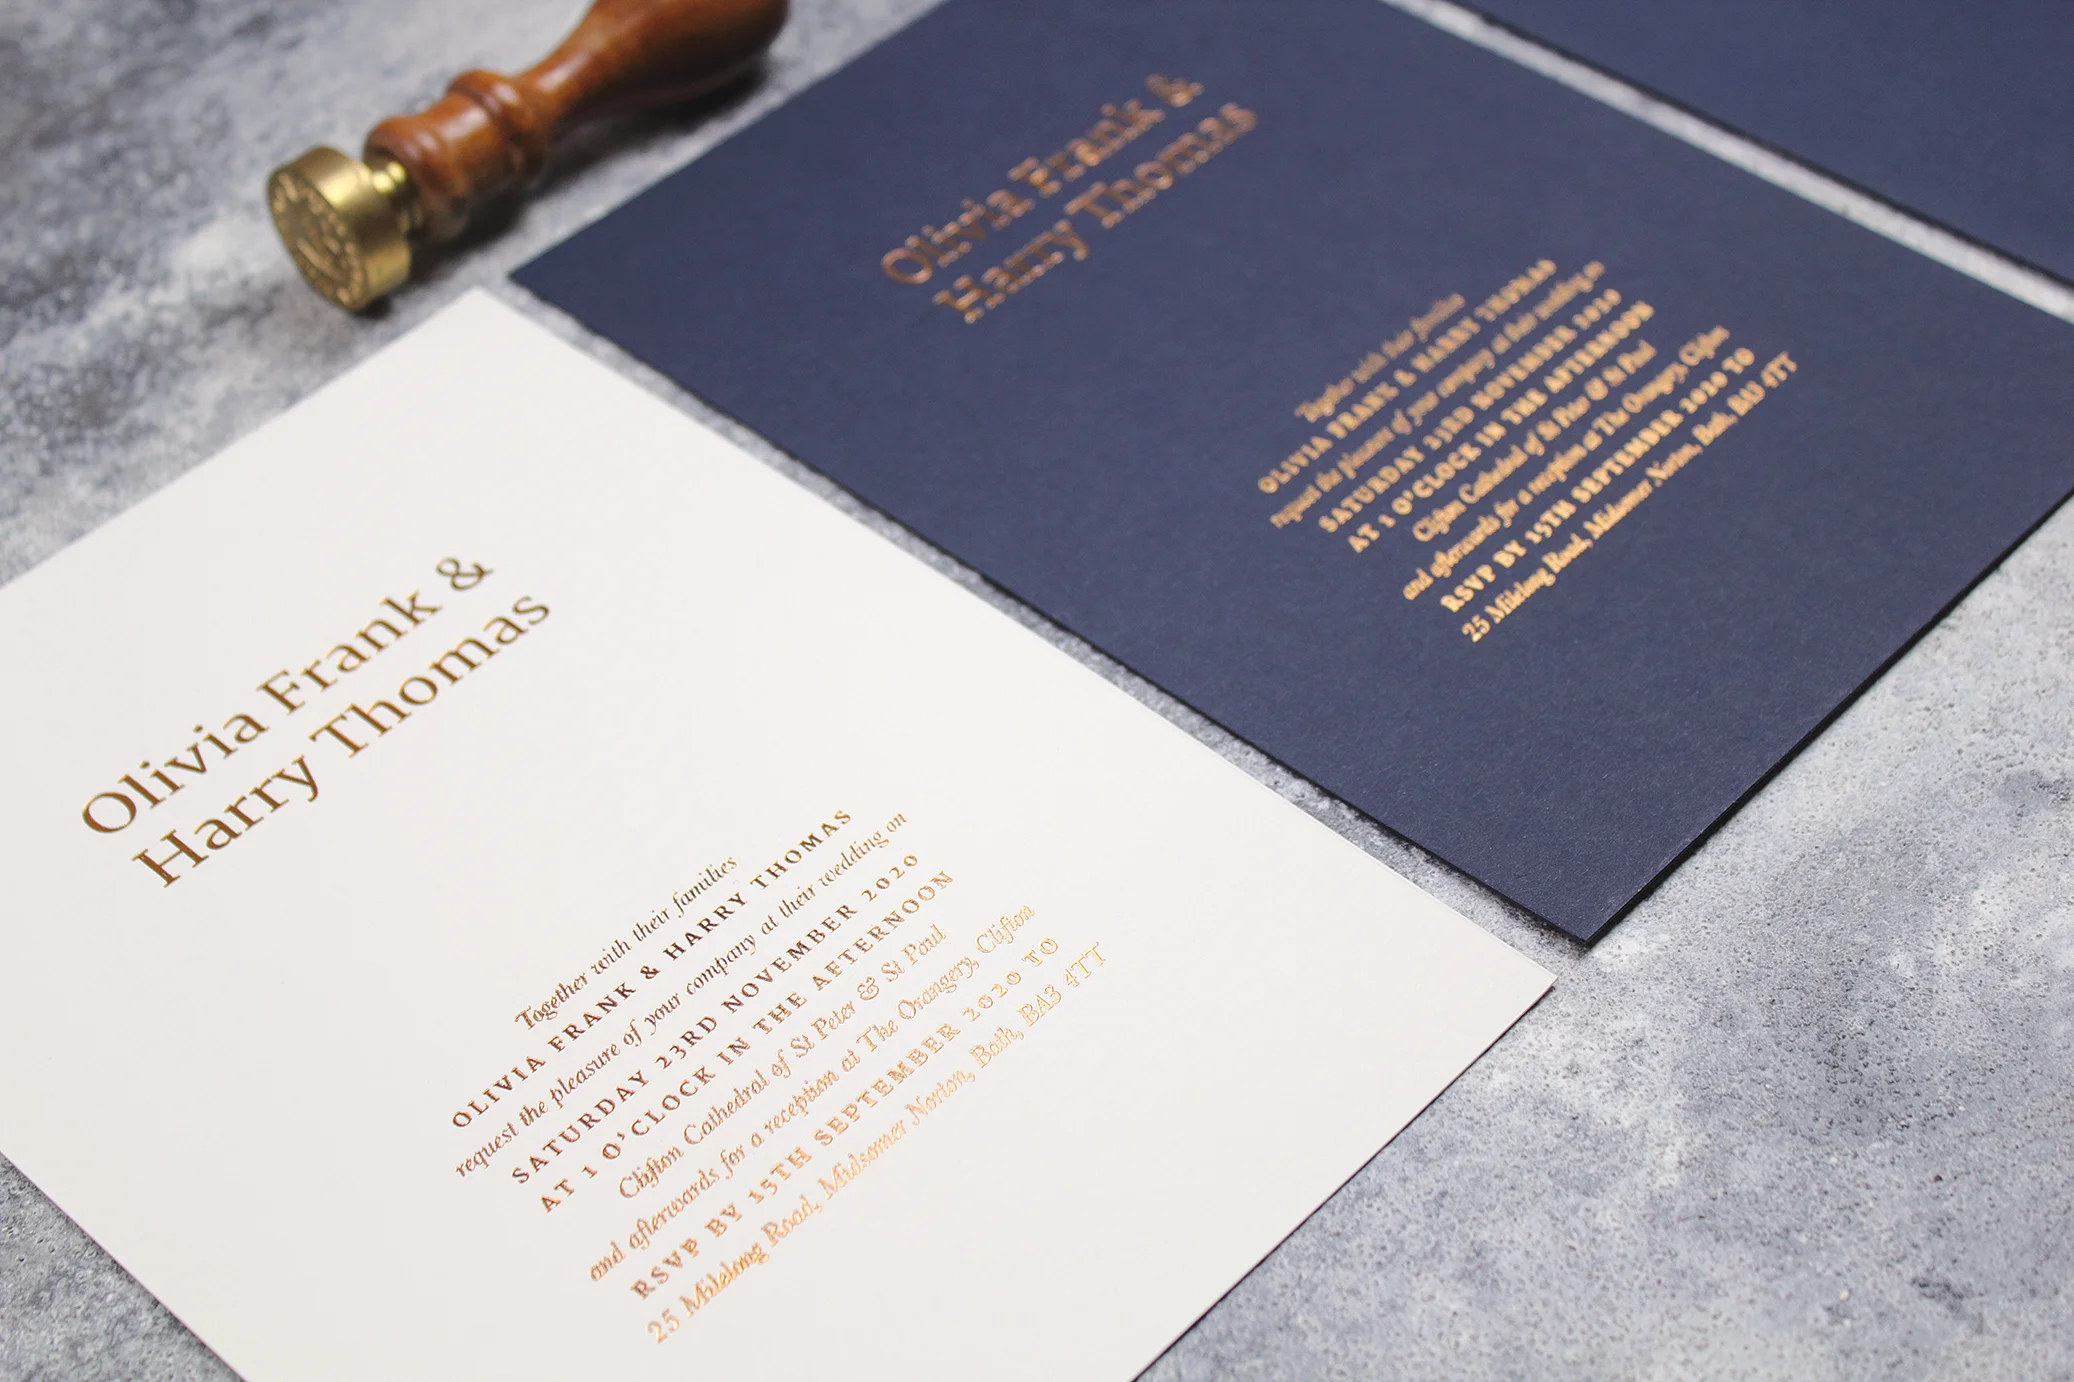 Olivia Frank &
Harry Thomas
Together with their families
OLIVIA FRANK & HARRY THOMAS
request the pleasure of your company at their wedding on
SATURDAY 23RD NOVEMBER 2020
AT 1 O'CLOCK IN THE AFTERNOON
Clifton Cathedral of St Peter & St Paul
and afterwards for a reception at The Orangery, Clifton
RSVP BY 15TH SEPTEMBER 2020 TO
25 Milelong Road, Midsomer Norton, Bath, BA3 4TT
Olivia Frank &
Harry Thomas
Together with their families
OLIVIA FRANK & HARRY THOMAS
request the pleasure of your company at their wedding on
SATURDAY 23RD NOVEMBER 2020
AT 1 O'CLOCK IN THE AFTERNOON
Clifton Cathedral of St Peter & St Paul
and afterwards for a reception at The Orangery, Clifton
RSVP BY 15TH SEPTEMBER 2020 TO
25 Milelong Road, Midsomer Norton, Bath, BA3 4TT